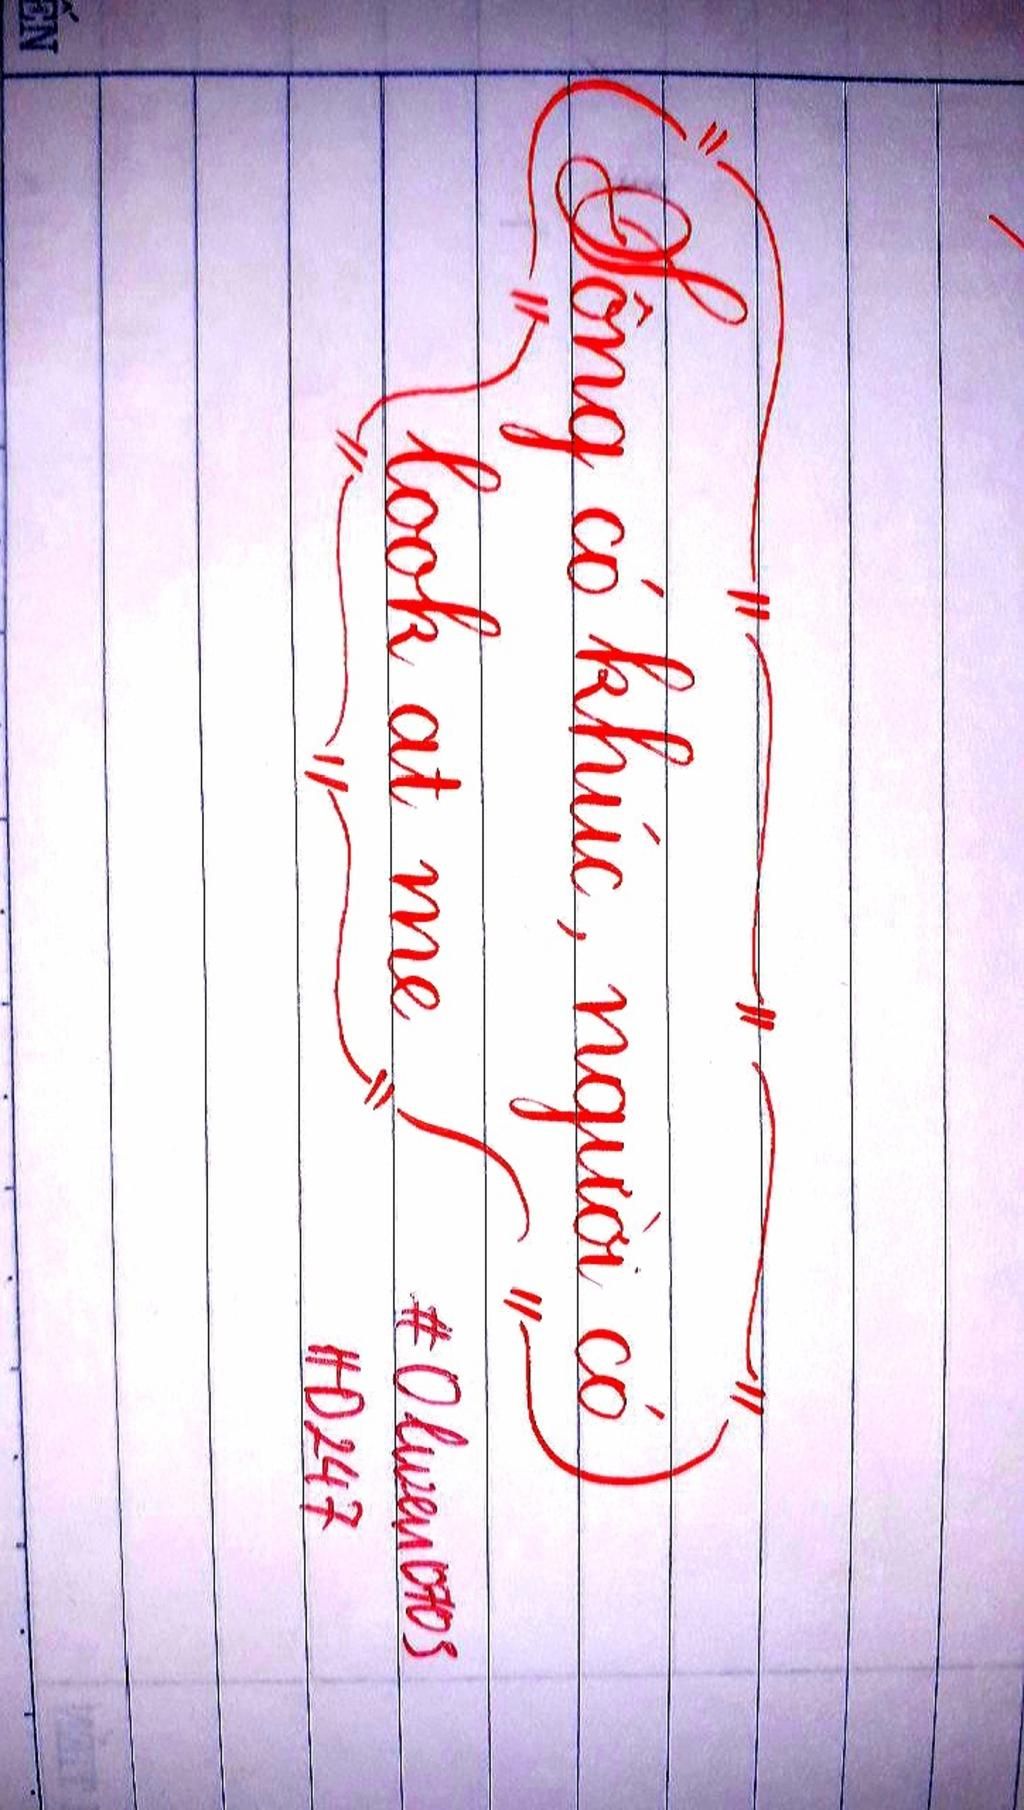 Sông có khúc, người có
look at me
#Oluzen0703
HD247